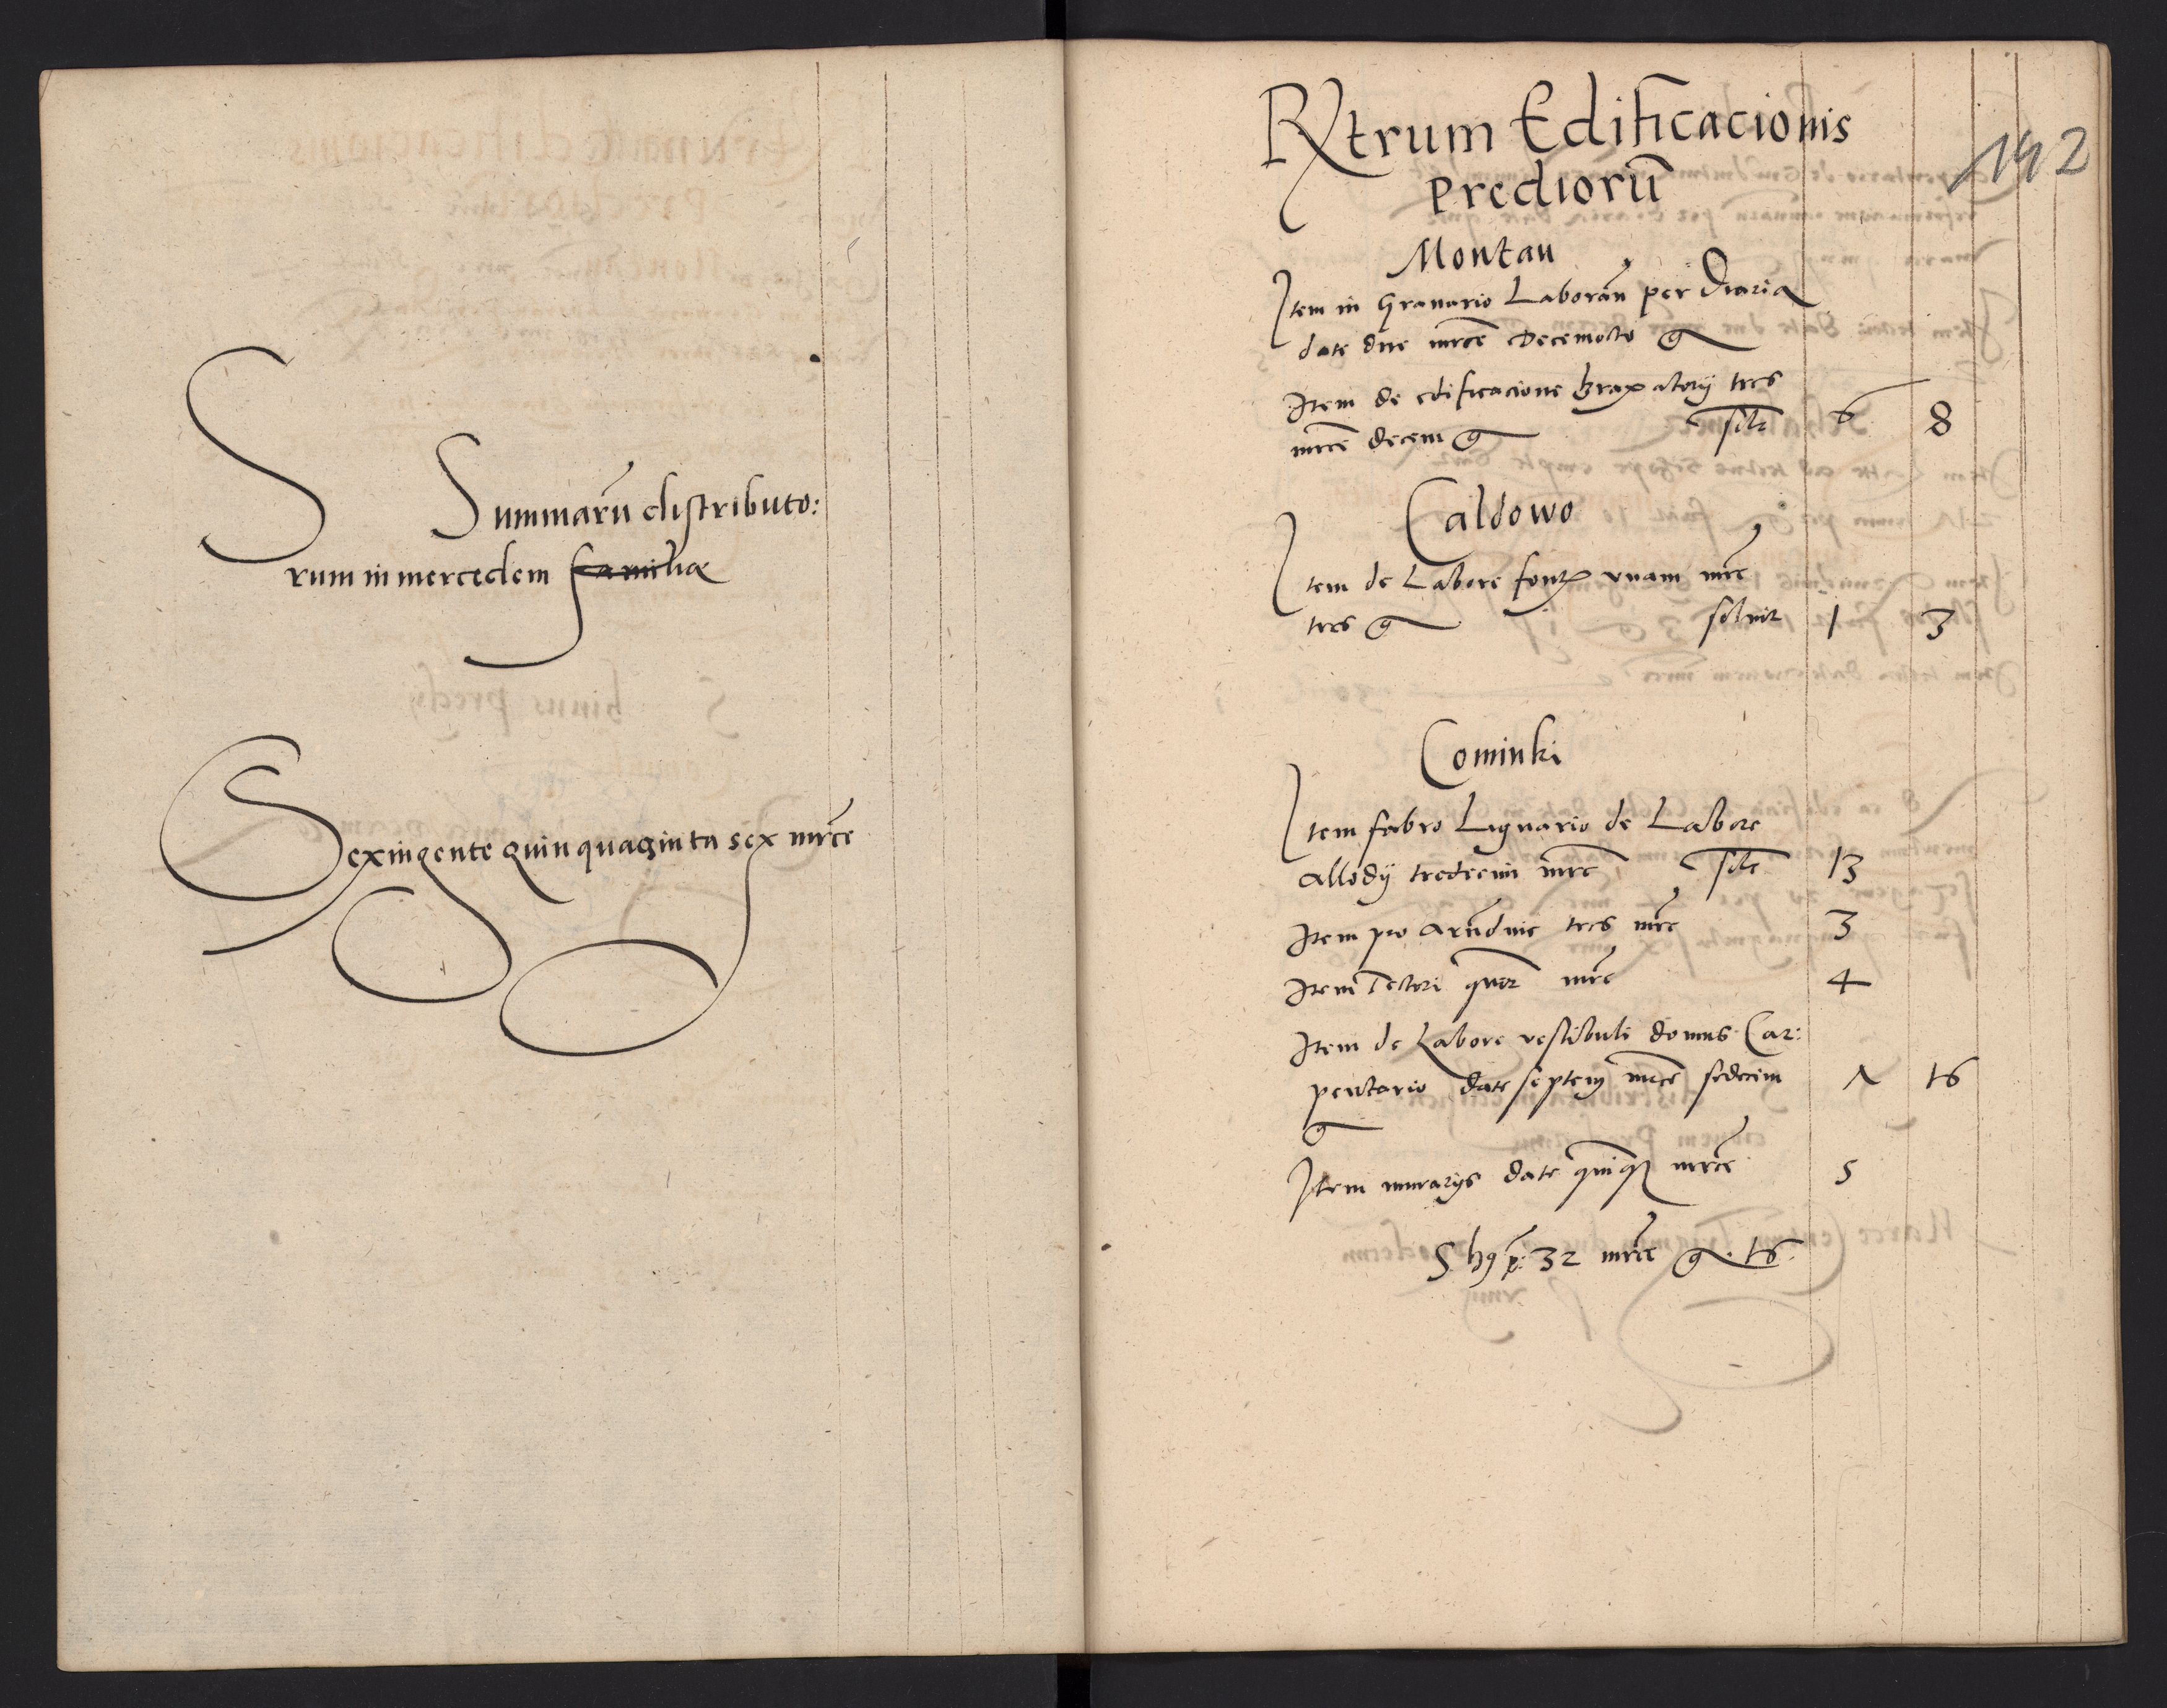 S Summarũ distributo:
rum in mercedem familiæ
Sexingente quinquaginta sex mrce
Rxtrum Edificacionis
prediorũ
142
Montau
Item in Granario Laborañ per Diaria
date due mrce Decemocto g
Item de edificacione braxatorij tres
mrce decem g 6 8
Caldowo
Item de Labore font unam mrc
tres g solvit 1 3
Cominki
Item fabro Lignario de Labore
allodij tredecim mrc 13
Item pro arundine tres mrc 3
Item Tectori quor mrc 4
Item de Labore vestibuli domus Car:
pentario date septem mrce sedecim 7 16
g
Item murarijs date quinq mrce 5
S. h9 p: 32 mrce g. 16.